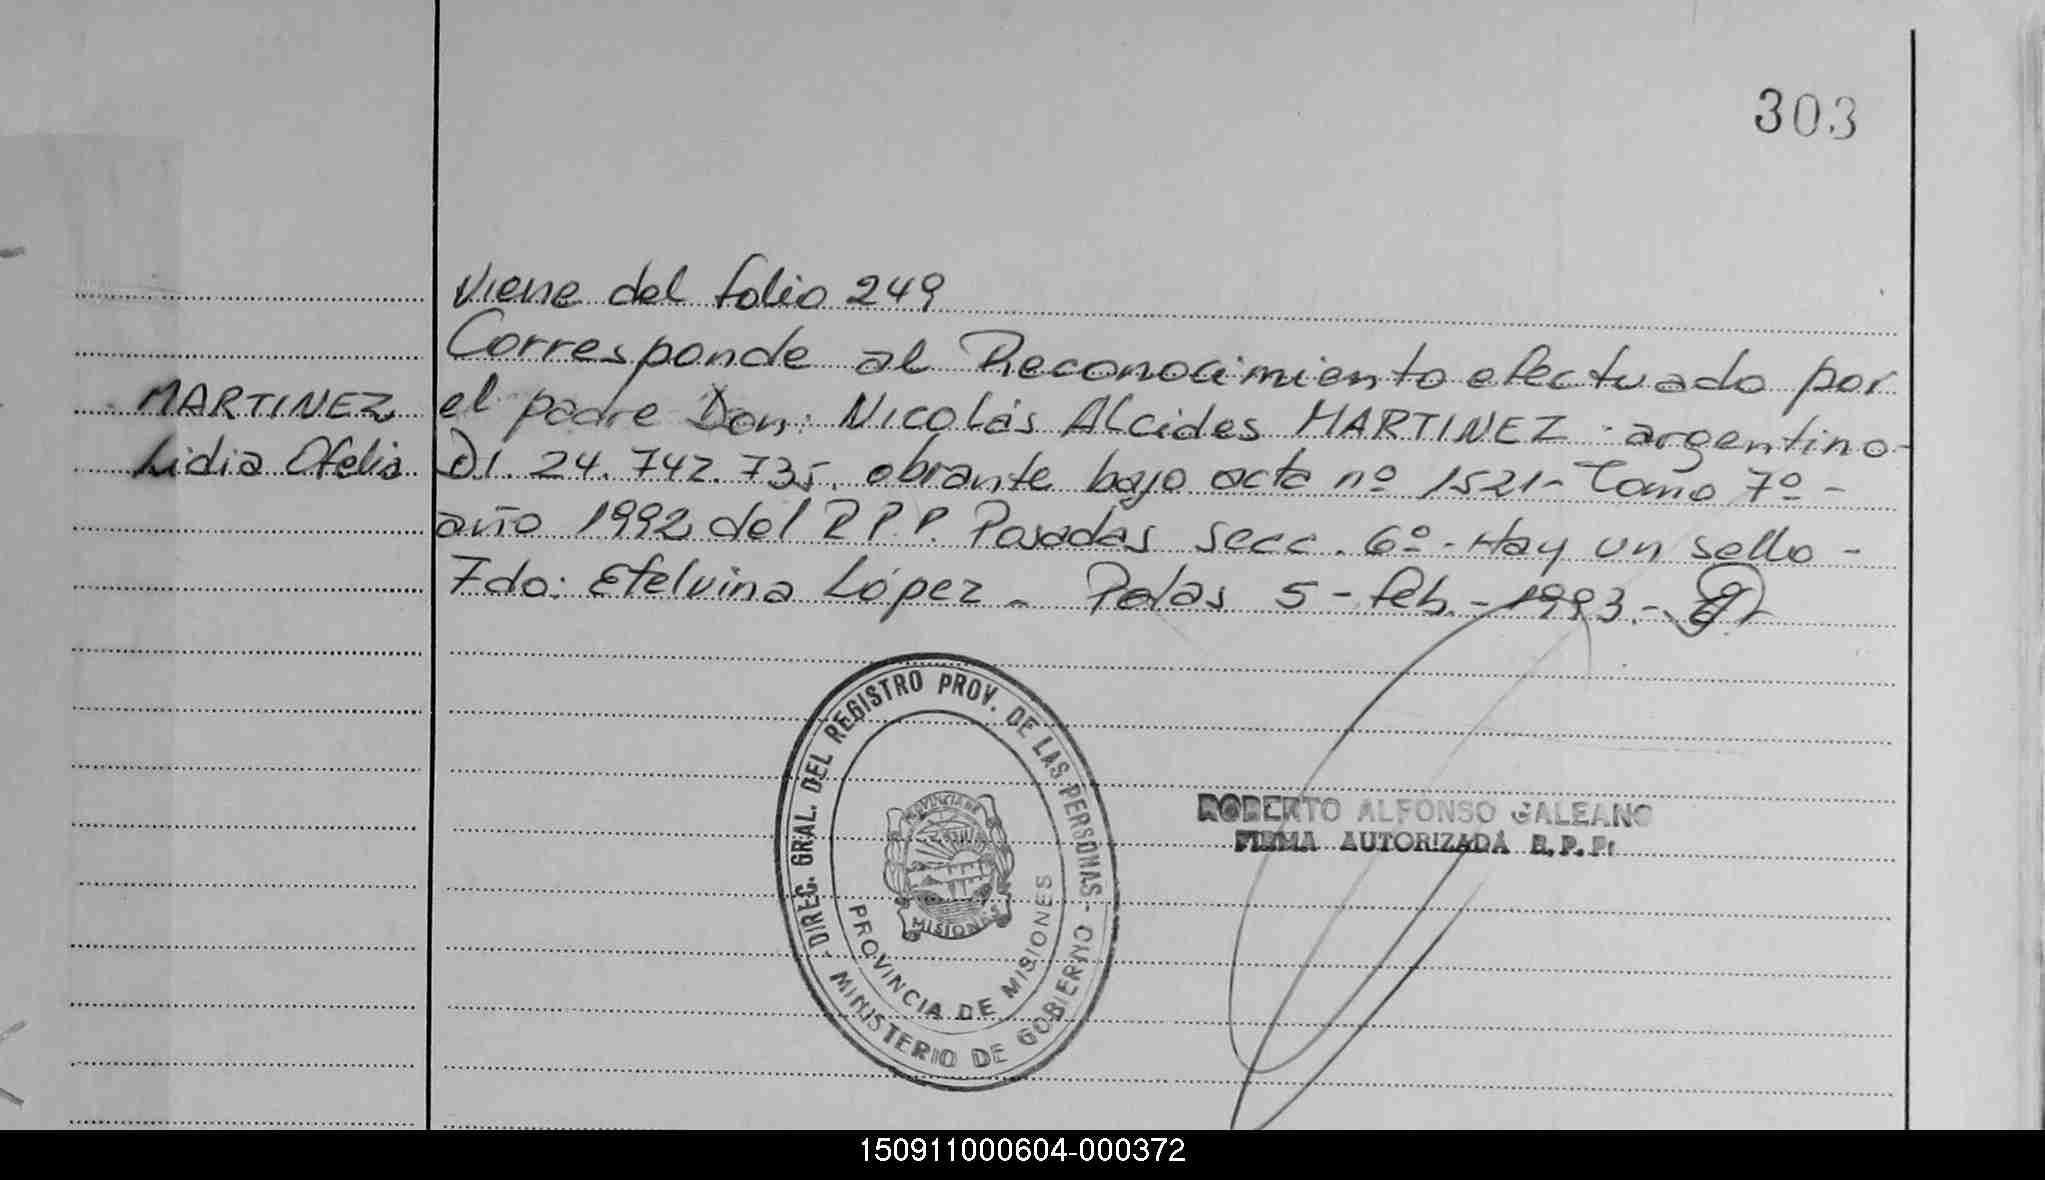 303
Viene del folio 249
Corresponde al Reconocimiento efectuado por
MARTINEZ el padre Don: Nicolás Alcides MARTINEZ - argentino -
Lidia Ofelia DI. 24.742.735. obrante bajo acta nº 1521 - Tomo 7º -
año 1992 del R.P.P. Posadas secc. 6º - Hay un sello -
Fdo: Etelvina López - Pdas 5 - feb. - 1993. -
DIREC. GRAL. DEL REGISTRO PROV. DE LAS PERSONAS -
MINISTERIO DE GOBIERNO
PROVINCIA DE
MISIONES
PROVINCIA DE MISIONES
ROBERTO ALFONSO GALEANO
FIRMA AUTORIZADA R.P.P.
150911000604-000372